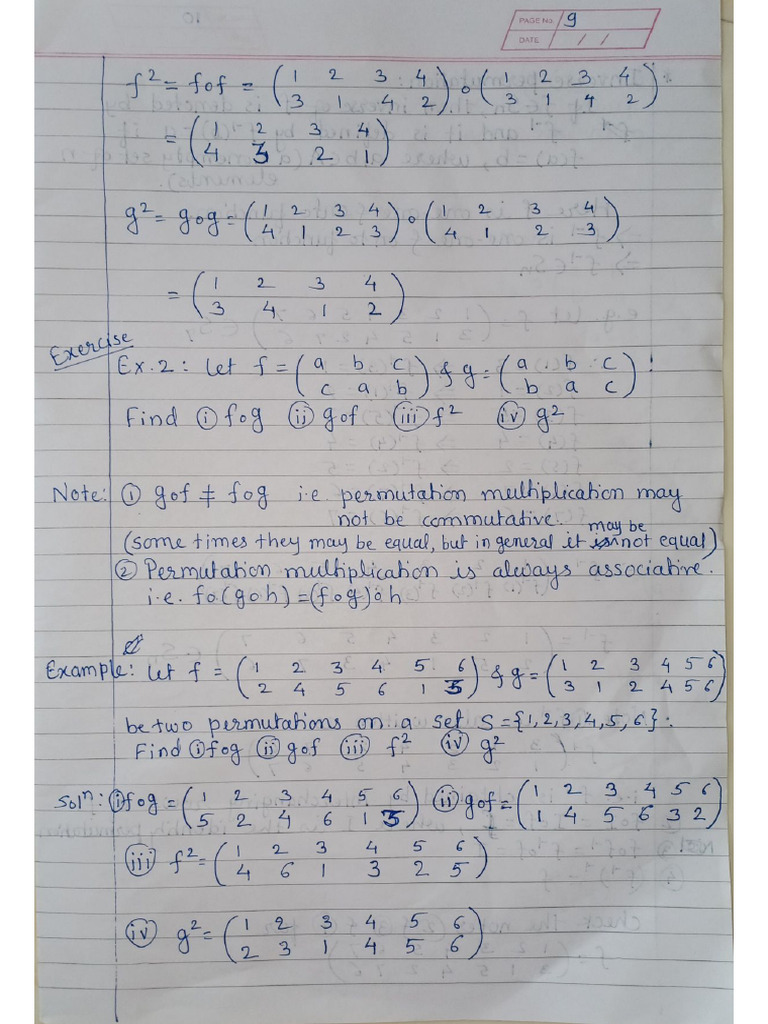 PAGE No. 9
DATE / /
f² = fof = (1 2 3 4) o (1 2 3 4)
(3 1 4 2) (3 1 4 2)
= (1 2 3 4)
(4 3 2 1)
g² = gog = (1 2 3 4) o (1 2 3 4)
(4 1 2 3) (4 1 2 3)
= (1 2 3 4)
(3 4 1 2)
Exercise
Ex.2: Let f = (a b c) & g = (a b c)
(c a b) (b a c)
Find (i) fog (ii) gof (iii) f² (iv) g²
Note: (1) gof ≠ fog i.e. permutation multiplication may
not be commutative.
(some times they may be equal, but in general it may be not equal)
(2) Permutation multiplication is always associative.
i.e. fo(goh) = (fog)oh
Example: Let f = (1 2 3 4 5 6) & g = (1 2 3 4 5 6)
(2 4 5 6 1 3) (3 1 2 4 5 6)
be two permutations on a set S = {1,2,3,4,5,6}.
Find (i) fog (ii) gof (iii) f² (iv) g²
Solⁿ: (i) fog = (1 2 3 4 5 6) (ii) gof = (1 2 3 4 5 6)
(5 2 4 6 1 3) (1 4 5 6 3 2)
(iii) f² = (1 2 3 4 5 6)
(4 6 1 3 2 5)
(iv) g² = (1 2 3 4 5 6)
(2 3 1 4 5 6)